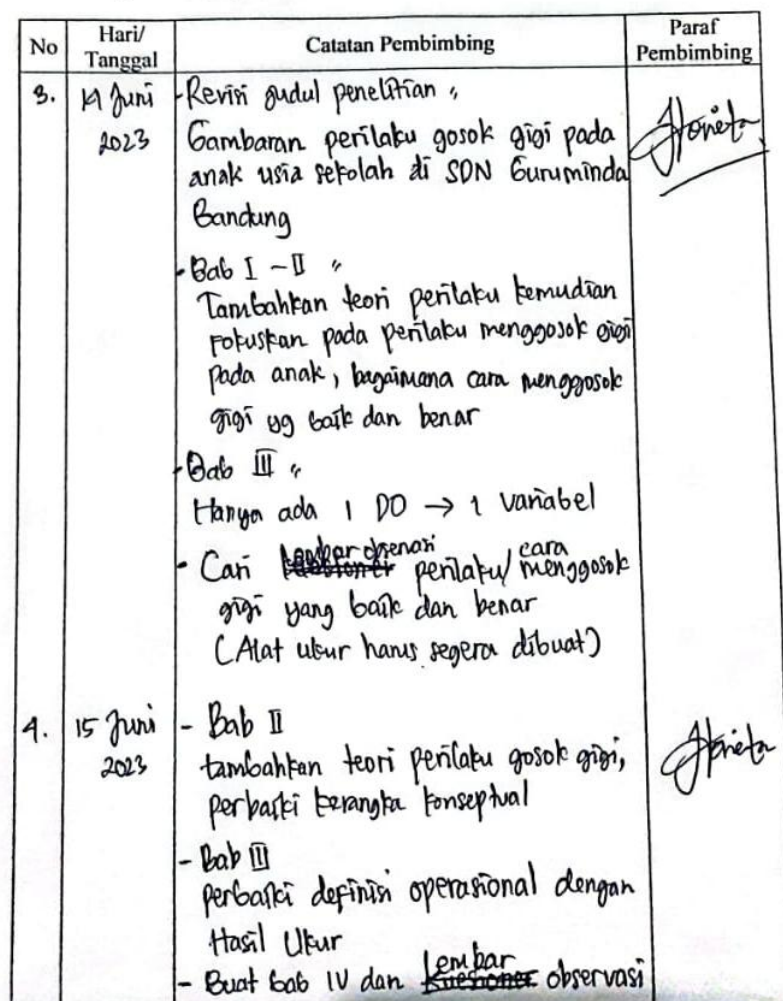 No
Hari/
Tanggal
Catatan Pembimbing
Paraf
Pembimbing
3.
14 Juni
2023
- Revisi judul penelitian "
Gambaran perilaku gosok gigi pada
anak usia sekolah di SDN Guruminda
Bandung
- Bab I - II "
Tambahkan teori perilaku kemudian
Fokuskan pada perilaku menggosok gigi
pada anak, bagaimana cara menggosok
gigi yg baik dan benar
- Bab III "
Hanya ada 1 DO → 1 variabel
- Cari lembar observasi perilaku/ cara menggosok
gigi yang baik dan benar
(Alat ukur harus segera dibuat)
4.
15 Juni
2023
- Bab II
tambahkan teori perilaku gosok gigi,
perbaiki kerangka konseptual
- Bab III
perbaiki definisi operasional dengan
Hasil Ukur
- Buat bab IV dan Lembar Kuesioner observasi